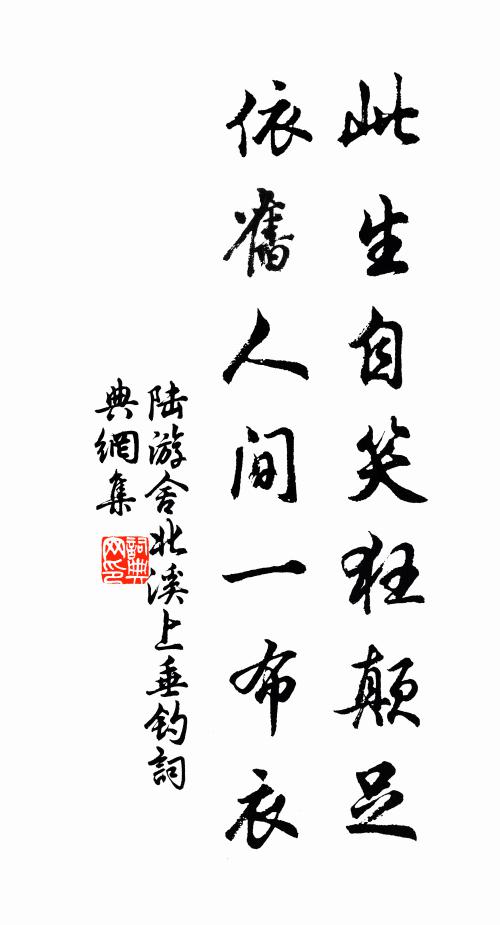 此生自笑狂顛足
依舊人間一布衣
陸游舍北溪上垂釣詞
典網集
詞典網印